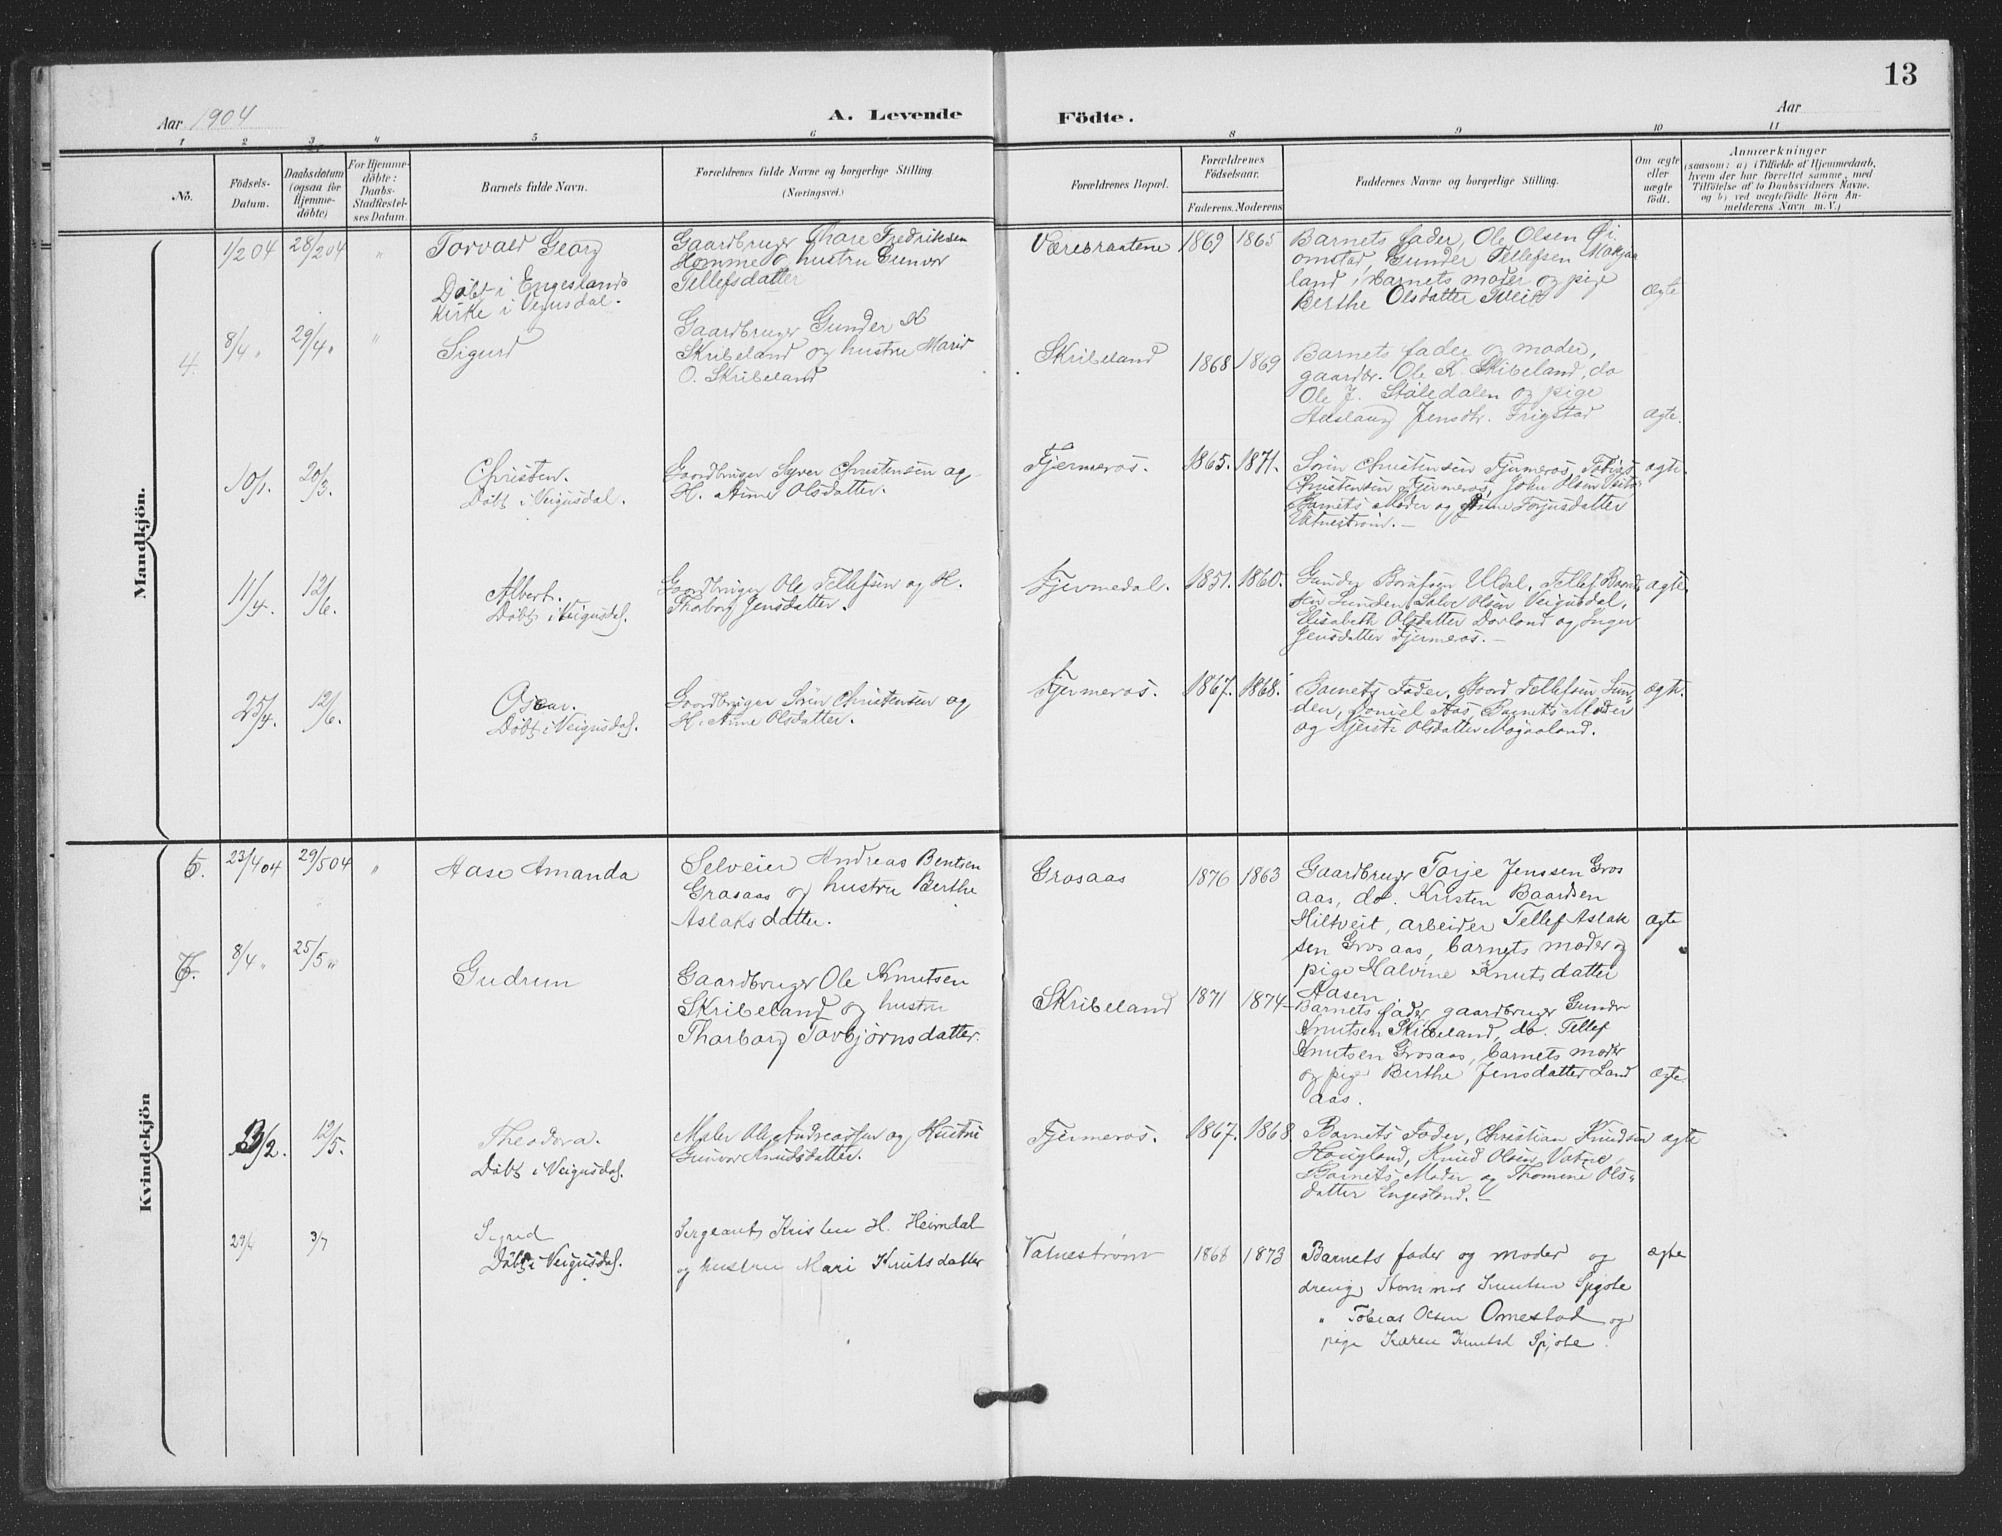 13
Aar 1904
A. Levende Födte.
Aar
1 2 3 4 5 6 8 9 10 11
No.
Födsels-Datum.
Daabsdatum (ogsaa for Hjemme-döbte)
For Hjemme-döbte: Daabs-Stadfæstel-ses Datum.
Barnets fulde Navn.
Forældrenes fulde Navne og borgerlige Stilling.
(Næringsvei.)
Forældrenes Bopæl.
Forældrenes Födselsaar.
Faderens. Moderens
Faddernes Navne og borgerlige Stilling.
Om ægte eller uægte födt.
Anmærkninger
(saasom: a) i Tilfælde af Hjemmedaab,
hvem der har forrettet samme, med
Tilföielse af to Daabsvidners Navne.
og b) ved uægtefödte Börn An-
melderens Navn m. V.)
Mandkjön.
1/2 04 28/2 04 "
Torvald Georg
Döbt i Engeslands
Kirke i Veigusdal.
Gaardbruger Thare Fredriksen
Homme og hustru Gunvor
Tellefsdatter
Værebraatene 1869 1865
Barnets fader, Ole Olsen
omstad, Gunder Tellefsen
land, Barnets moder og pige
Berthe Olsdatter Tveit
ægte
4. 8/4 " 29/4 " "
Sigurd
Gaardbruger Gunder K
Skribeland og hustru Marie
O. Skribeland
Skribeland 1868 1869
Barnets fader og moder,
gaardbr. Ole K. Skibeland, do
Ole J. Ståledalen og pige
Aaslaug Jensdtr. Trigstad
ægte.
10/1. 20/3.
Christen.
Döbt i Veigusdal.
Gaardbruger Syver Christensen og
H. Anne Olsdatter.
Fjermeros. 1865. 1871.
Sörin Christensen Fjermeros, Tobias
Christensen Fjermeros, John Olsen
Barnets Moder og Anne Torjusdatter
Vatneström. —
ægte.
11/4. 12/6.
Albert.
Döbt i Veigusdal.
Gaardbruger Ole Tellefsen og H.
Thaborg Jensdatter.
Fjermedal. 1851. 1860.
Gunder Uldal, Tellef Baard
sen Sunden, Salve Olsen Veigusdal,
Elisabeth Olsdatter Dovland og Inger
Jensdatter Fjermeros. —
ægte.
25/4. 12/6.
Oscar.
Döbt i Veigusdal.
Gaardbruger Sörin Christensen og
H. Anne Olsdatter.
Fjermeros. 1867. 1868.
Barnets Fader, Baard Tellefsen Sun-
den, Daniel Aas, Barnets Moder
og Kjersti Olsdatter Mogaaland.
ægte.
Kvindekjön
6. 23/4 04 29/5 04 "
Aase Amanda
Selveier Andreas Bentsen
Grasaas og hustru Berthe
Aslaksdatter.
Grosaas 1876 1863
Gaardbruger Tarje Jenssen Gros
aas, do. Kristen Baardsen
Hiltveit, arbeider Tellef Aslak
sen Grosaas, barnets moder og
pige Halvine Knutsdatter
Aasen
ægte
7. 8/4 " 25/5 "
Gudrun
Gaardbruger Ole Knutsen
Skribeland og hustru
Tharborg Tovbjörnsdatter.
Skribeland 1871 1874
Barnets fader, gaardbruger Gunder
Knutsen Skibeland, do. Tellef
Knutsen Grosaas, barnets moder
og pige Berthe Jensdatter Land
aas.
ægte.
13/2. 12/5.
Theodora.
Döbt i Veigusdal.
Maler Ole Andreassen og Hustru
Gunvor Knudsdatter.
Fjermeros. 1867. 1868
Barnets Fader, Christian Knudsen
Hougland, Knud Olsen Vatne,
Barnets Moder og Thomine Ols-
datter Engesland. —
ægte
29/6 3/7
Sigrid
Döbt i Veigusdal.
Sergeant Kristen H. Heimdal
og hustru Mari Knutsdatter
Vatnestrøm 1868 1873
Barnets fader og moder og
dreng Knutsen
" Tobias Olsen Omestad og
pige Karen Knutsd Spjote.
ægte